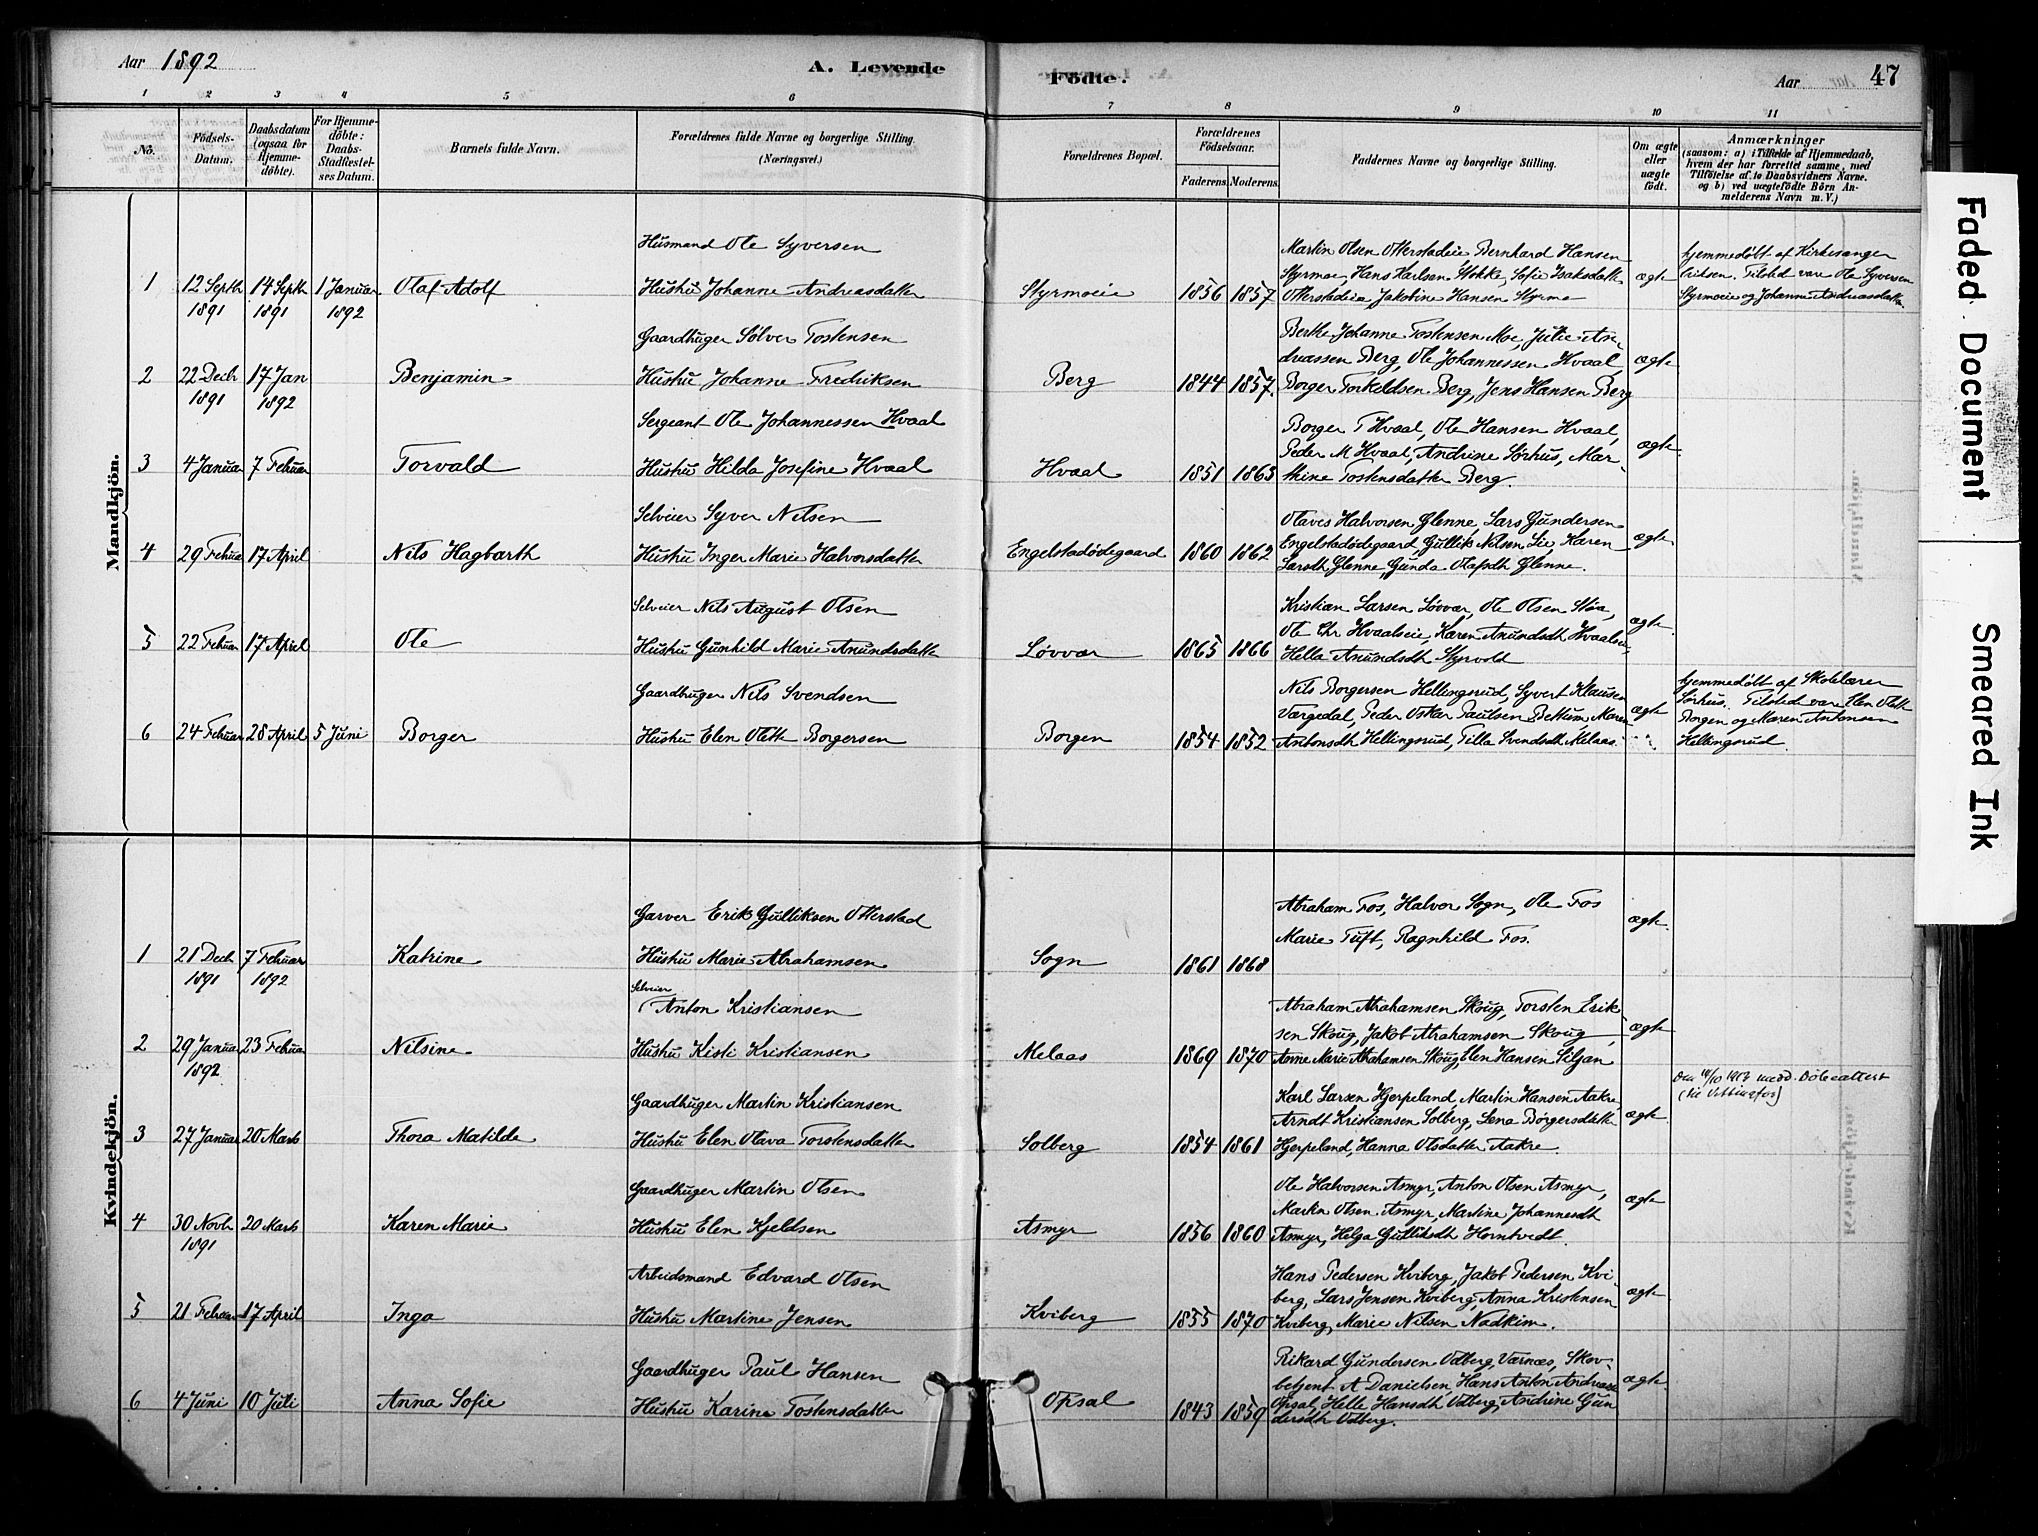 Aar 1892
A. Levende
Fødte.
Aar
47
1 2 3 4 5 6 7 8 9 10 11
No.
Fødsels-
Datum.
Daabsdatum
(ogsaa for
Hjemme-
døbte).
For Hjemme-
døbte:
Daabs-
Stadfæstel-
ses Datum.
Barnets fulde Navn.
Forældrenes fulde Navne og borgerlige Stilling.
(Næringsvei.)
Forældrenes Bopæl.
Forældrenes
Fødselsaar.
Faderens. Moderens.
Faddernes Navne og borgerlige Stilling.
Om ægte
eller
uægte
født.
Anmærkninger
(saasom: a) i Tilfælde af Hjemmedaab,
hvem der har forrettet samme, med
Tilføielse af to Daabsvidners Navne.
og b) ved uægtefødte Børn An-
melderens Navn m. V.)
Mandkjön.
1
12 Septb
1891
14 Septb
1891
1 Januar
1892
Olaf Adolf
Husmand Ole Syversen
Hustru Johanne Andreasdatter
Styrmoeie
1856 1857
Martin Olsen Otterstadeie, Bernhard Hansen
Styrmoe, Hans Karlsen Stokke, Sofie Isaksdatter
Otterstadeie, Jakobine Hansen Styrmo
ægte
hjemmedøbt af Kirkesanger
Eriksen. Tilsted vare Ole Syversen
Styrmoeie og Johanne Andreasdatter
2
22 Decb
1891
17 Jan
1892
Benjamin
Gaardbruger Sølver Tostensen
Hustru Johanne Fredriksen
Berg
1844 1857.
Berthe Johanne Tostensen Moe, Julie An-
dreassen Berg, Ole Johannessen Hvaal,
Borger Torkeldsen Berg, Jens Hansen Berg
ægte
3
4 Januar
7 Februar
Torvald
Sergeant Ole Johannessen Hvaal
Hustru Hilda Josefine Hvaal
Hvaal
1851 1863
Borger T Hvaal, Ole Hansen Hvaal,
Peder M Hvaal, Andrine Sørhus, Mar-
thine Tostensdatter Berg.
ægte
4
29 Februar
17 April
Nils Hagbarth
Selveier Syver Nilsen
Hustru Inger Marie Halvorsdatter
Engelstadødegaard
1860 1862
Olaves Halvorsen Glenne, Lars Gundersen
Engelstadødegaard, Gullik Nilsen Lie, Karen
Larsdt Glenne, Gunda Olafsdt Glenne.
ægte
5
22 Februar
17 April
Ole
Selveier Nils August Olsen
Hustru Gunhild Marie Anundsdatter
Løvvar
1865 1866
Kristian Larsen Løvvar, Ole Olsen Moa,
Ole Chr Hvaalseie, Karen Anundsdt Hvaalseie,
Hella Anundsdt Styrvold
ægte
6
24 Februar
28 April
5 Juni
Borger
Gaardbruger Nils Svendsen
Hustru Elen Oleth Borgersen
Borgen
1854 1852
Nils Borgersen Hellingsrud, Syvert Klausen
Værgedal, Peder Oskar Paulsen Bettum, Maren
Antonsdt Hellingsrud, Tilla Svendsdt Melaas.
ægte
hjemmedøbt af Skolelærer
Sørhus. Tilsted vare Elen Oleth
Borgen og Maren Antonsen
Hellingsrud.
Kvindekjön.
1
21 Decb
1891
7 Februar
1892
Katrine
Garver Erik Gulliksen Otterstad
Hustru Marie Abrahamsen
Sogn
1861 1868
Abraham Fos, Halvor Sogn, Ole Fos
Marie Tuft, Ragnhild Fos.
ægte
2
29 Januar
1892
23 Februar
Nilsine
Selveier
Anton Kristiansen
Hustru Kisti Kristiansen
Melaas
1869 1870
Abraham Abrahamsen Skoug, Torsten Erik-
sen Skoug, Jakob Abrahamsen Skoug,
Anne Marie Abrahamsen Skoug, Elen Hansen Siljan
ægte
3
27 Januar
20 Marts
Thora Matilde
Gaardbruger Martin Kristiansen
Hustru Elen Olava Torstensdatter
Solberg
1854 1861
Karl Larsen Hjerpeland Martin Hansen Aakre,
Arndt Kristiansen Solberg, Lena Børgersdatter
Hjerpeland, Hanna Olsdatter Aakre.
ægte
Døbeattest
(til Vittingfos)
4
30 Novb
1891
20 Marts
Karen Marie
Gaardbruger Martin Olsen
Hustru Elen Kjeldsen
Asmyr
1856 1860
Ole Halvorsen Asmyr, Anton Olsen Asmyr,
Martin Olsen Asmyr, Martine Johannesdt
Asmyr, Helga Gulliksdt Horntvedt.
ægte
5
21 Februar
17 April
Inga
Arbeidsmand Edvard Olsen
Hustru Martine Jensen
Kviberg
1855 1870
Hans Pedersen Kviberg, Jakob Pedersen Kvi-
berg, Lars Jensen Kviberg, Anna Kristensen
Kviberg, Marie Nilsen Nadkim.
ægte
6
4 Juni
10 Juli
Anna Sofie
Gaardbruger Paul Hansen
Hustru Karine Tostensdatter
Opsal
1843 1859
Rikard Gundersen Odberg, Værnæs, Skov-
betjent A Danielsen, Hans Anton Andreassen
Opsal, Helle Hansdt Odberg, Andrine Gun-
dersdt Odberg.
ægte
Faded Document
Smeared Ink